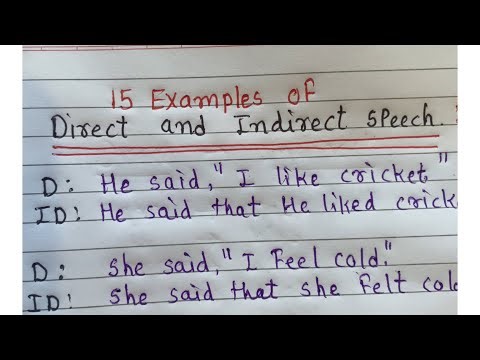 15 Examples of
Direct and Indirect Speech.
D: He said, "I like cricket"
ID: He said that He liked crick
D: She said, "I Feel cold."
ID: She said that she felt col